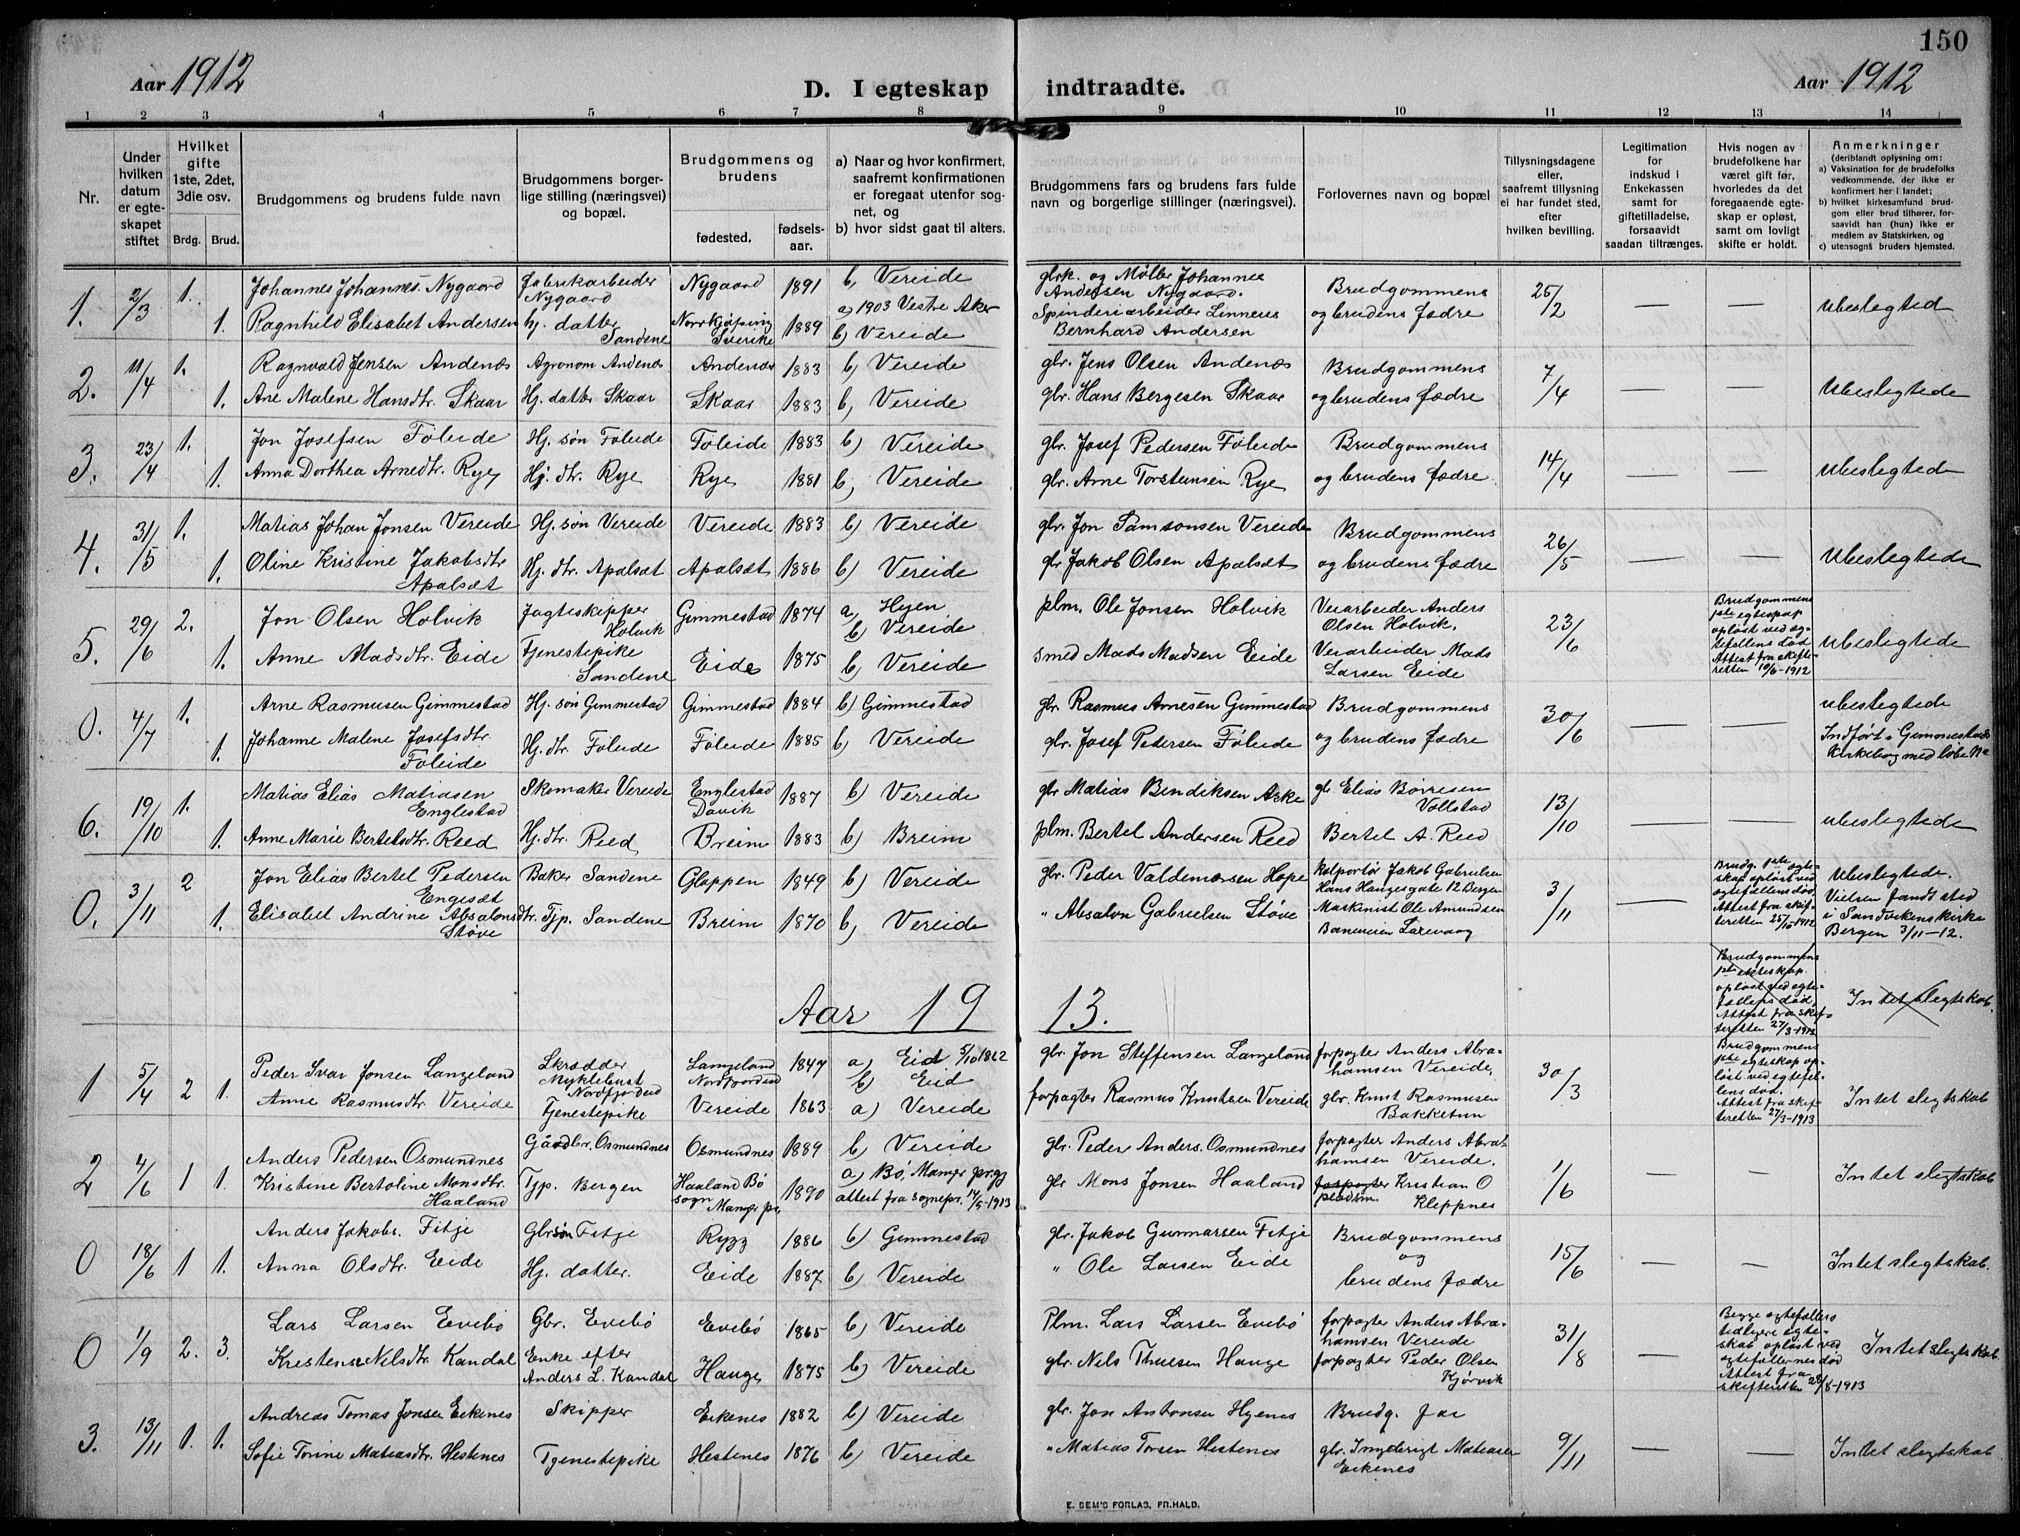 150
Aar 1912
D. I egteskap indtraadte.
Aar 1912
1 2 3 4 5 6 7 8 9 10 11 12 13 14
Nr.
Under hvilken datum er egteskapet stiftet
Hvilket gifte 1ste, 2det, 3die osv.
Brdg. Brud.
Brudgommens og brudens fulde navn
Brudgommens borgerlige stilling (næringsvei) og bopæl.
Brudgommens og brudens
fødested. fødselsaar.
a) Naar og hvor konfirmert, saafremt konfirmationen er foregaat utenfor sognet, og
b) hvor sidst gaat til alters.
Brudgommens fars og brudens fars fulde navn og borgerlige stillinger (næringsvei).
Forlovernes navn og bopæl
Tillysningsdagene eller, saafremt tillysning ei har fundet sted, efter hvilken bevilling.
Legitimation for indskud i Enkekassen samt for giftetilladelse, forsaavidt saadan tiltrænges.
Hvis nogen av brudefolkene har været gift før, hvorledes da det foregaaende egteskap er opløst, samt om lovligt skifte er holdt.
Anmerkninger
(deriblandt oplysning om:
a) Vaksination for de brudefolks vedkommende, der ikke er konfirmert her i landet;
b) hvilket kirkesamfund brudgom eller brud tilhører, forsaavidt han (hun) ikke er medlem av Statskirken, og
c) utensogns bruders hjemsted.
1. 2/3 1. Johannes Johannes. Nygaard Fabrikarbeider Nygaard Nygaard 1891 b, Vereide gbrk. og Møller Johannes Andersen Nygaard. Brudgommens 25/2 — — Ubeslegtede
1. Ragnhild Elisabet Andersen hj. datter Sandene Norrkjøping Sverike 1889 a) 1903 Vestre Aker b) Vereide Spinderiarbeider Linneus Bernhard Andersen og brudens fædre
2. 11/4 1. Ragnvald Jensen Andenæs Agronom Andenæs Andenæs 1883 b) Vereide gbr. Jens Olsen Andenæs Brudgommens 7/4 — — Ubeslegtede
1. Ane Malene Hansdtr. Skaar Hj. datter Skaar Skaar 1883 b, Vereide gbr. Hans Bergesen Skaar og brudens fædre
3. 23/4 1. Jon Josefsen Føleide Hj. søn Føleide Føleide 1883 b) Vereide gbr. Josef Pedersen Føleide Brudgommens 14/4 — — Ubeslegtede
1. Anna Dorthea Arnedtr. Rye Hj. dtr. Rye Rye 1881 b, Vereide gbr. Arne Torsteinsen Rye og brudens fædre.
4. 31/5 1. Matias Johan Jonsen Vereide Hj. søn Vereide Vereide 1883 b) Vereide gbr. Jon Samsonsen Vereide Brudgommens 26/5 — — Ubeslegtede
1. Oline Kristine Jakobsdtr. Apalsæt Hj. dtr. Apalsæt Apalsæt 1886 b) Vereide gbr. Jakob Olsen Apalsæt og brudens fædre
5. 29/6 2. Jon Olsen Holvik Jagteskipper Holvik Gimmestad 1874 a, Hyen b) Vereide plm. Ole Jonsen Holvik Veiarbeider Anders Olsen Holvik. 23/6 — Brudgommens 1ste egteskap opløst ved egtefellens død Attest fra skifteretten 10/6-1912 Ubeslegtede
1. Anne Madsdtr. Eide Tjenestepike Sandene Eide 1875 b) Vereide smed Mads Madsen Eide Veiarbeider Mads Larsen Eide
0. 4/7 1. Arne Rasmusen Gimmestad Hj. søn Gimmestad Gimmestad 1884 b) Gimmestad gbr. Rasmus Arnesen Gimmestad Brudgommens 30/6 — — ubeslegtede
1. Johanne Malene Josefsdtr. Føleide Hj. dtr. Føleide Føleide 1885 b) Vereide gbr. Josef Pedersen Føleide og brudens fædre Indført i Gimmestads Kirkebog med løbe №
6. 19/10 1. Matias Elias Matiasen Englestad Skomaker Vereide Englestad Davik 1887 b) Vereide gbr Matias Bendiksen Aske gb. Elias Børresen Vollstad 13/10 — — ubeslegtede
1. Anne Marie Bertelsdtr. Reed Hj. dtr. Reed Breim 1883 b) Breim plm. Bertel Andersen Reed Bertel A. Reed
0. 3/11 2 Jon Elias Bertel Pedersen Engesæt Baker Sandene Gloppen 1849 b) Vereide gbr. Peder Valdemarsen Hope Kolportør Jakob Gabrielsen Hans Hauges gate 12 Bergen 3/11 — Brudg. 1ste egteskap opløst ved egtefellens død. Attest fra skifteretten 25/10 1912 Ubeslegtede.
1. Elisabet Andrine Absalonsdtr. Støve Tjp. Sandene Breim 1870 b, Vereide " Absalon Gabrielsen Støve Maskinist Ole Amundsen Baneveien Laxevaag Vielsen fandt sted i Sandvikens kirke Bergen 3/11–12.
Aar 1913.
Brudgommens 1ste egteskap opløst ved egtefellens død, Attest fra skifteretten 27/3-1913 Intet slegtskab.
1 5/4 2 1. Peder Ivar Jonsen Langeland Skrædder Myklebust Nordfjordeid Langeland Nordfjordeid 1847 a) Eid 5/10 1862 b) Eid gbr. Jon Steffensen Langeland forpagter Anders Abrahamsen Vereide, 30/3 — Brudgommens 1ste egteskap opløst ved egtefellens død. Attest fra skifteretten 27/3-1913 Intet slegtskab
Anne Rasmusdtr. Vereide Tjenestepike Vereide 1863 a) Vereide forpagter Rasmus Knutsen Vereide gbr. Knut Rasmusen Bakketun
2 4/6 1 1. Anders Pedersen Osmundnes Gårdbr. Osmundnes Osmundnes 1889 b) Vereide gbr. Peder Anders. Osmundnes forpagter Anders Abrahamsen Vereide. 1/6 — — Intet slegtskab
Kristine Bertoline Monsdtr. Haaland Tjp. Bergen Haaland Bø sogn Manger pr. 1890 a) Bø, Manger prgj attest fra sognepr. 14/5-1913 gbr Mons Jonsen Haaland forpagter Kristian O Kleppnes
0 18/6 1 1. Anders Jakobs. Fitje Gbr søn Fitje Rygg 1886 b) Gimmestad gbr. Jakob Gunnarsen Fitje Brudgommens og 15/6 — — Intet slegtskab.
Anna Olsdtr. Eide Hj. datter. Eide 1887 b) Vereide " Ole Larsen Eide brudens fædre
0 1/9 2. 3. Lars Larsen Evebø Gbr. Evebø Evebø 1865 b) Vereide Plm. Lars Larsen Evebø forpagter Anders Abrahamsen Vereide 31/8 — Begge egtefellers tidligere egteskab opløst ved egtefellernes død Attest fra skifteretten 28/8-1913 Intet slegtskab
Kristense Nilsdtr. Kandal Enke efter Anders L. Kandal Hauge 1875 b) Vereide gbr. Nils Thuesen Hauge forpagter Peder Olsen Kjørvik
3. 13/11 1. 1. Andreas Tomas Jonsen Eikenes Skipper Eikenes 1882 b) Vereide gbr. Jon Antonsen Hyenes Brudg. far 9/11 — — Intet slegtskab
Sofie Torine Matiasdtr. Hestenes Tjenestepike Hestenes 1876 b) Vereide " Matias Torsen Hestenes gbr. Ingebrigt Matiasen Eikenes
E. SEM'S FORLAG, FR.HALD.